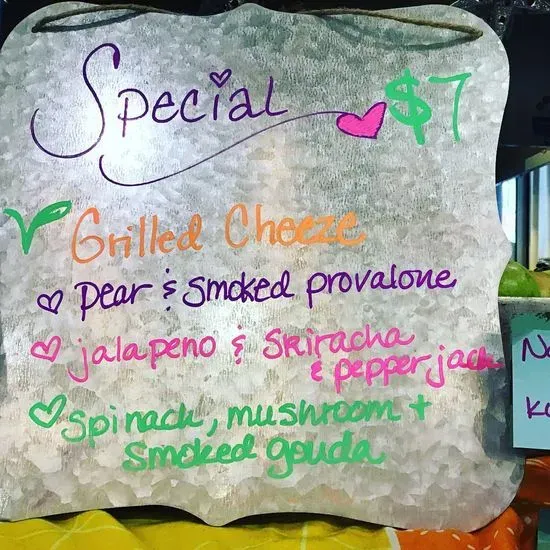 Special $7
Grilled Cheeze
pear & smoked provalone
jalapeno & skiracha
& pepper jack
spinach, mushroom +
smoked gouda